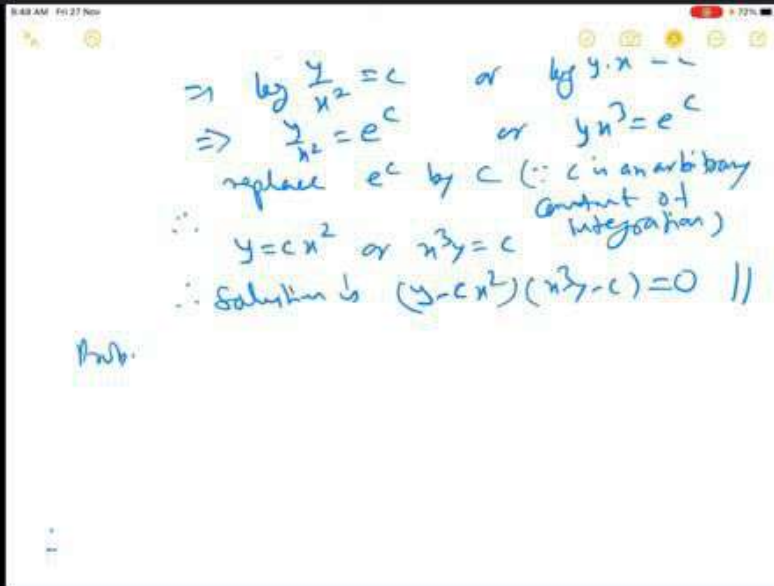 8:48 AM Fri 27 Nov
72%
⇒ log y/x² = c or log y.x
⇒ y/x² = e^c or yx³ = e^c
replace e^c by c (∵ c is an arbitrary
constant of
integration)
∴ y = cx² or x³y = c
∴ Solution is (y-cx²)(x³y-c) = 0 //
Prob.